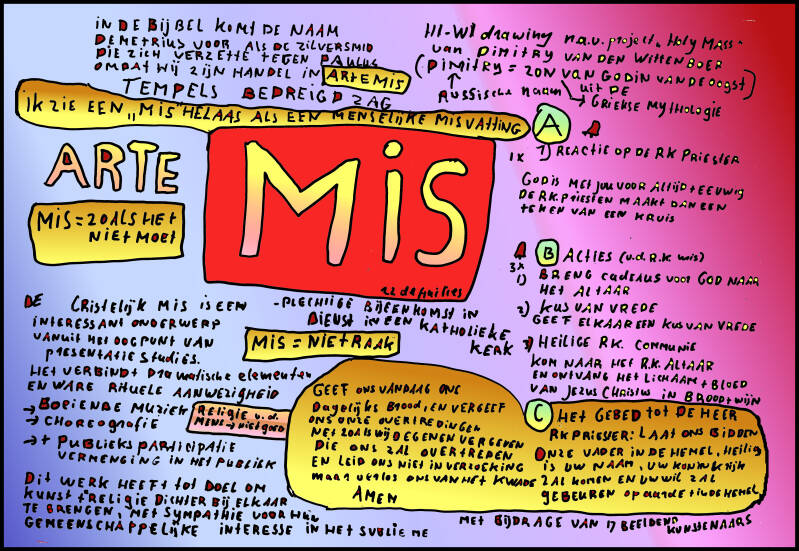 IN DE BIJBEL KOMT DE NAAM
DEMETRIUS VOOR ALS DE ZILVERSMID
DIE ZICH VERZETTE TEGEN PAULUS
OMDAT HIJ ZIJN HANDEL IN ARTEMIS
TEMPELS BEDREIGD ZAG
HI-WI drawing n.a.v. project "Holy Mass"
van DIMITRY VAN DEN WITTENBOER
(DIMITRY = ZON VAN GODIN VAN DE OOGST)
Russische naam
UIT DE
→ GRIEKSE MYTHOLOGIE
IK ZIE EEN „MIS" HELAAS ALS EEN MENSELIJKE MISVATTING
ARTE
MiS
22 definities
MIS = ZOALS HET
NIET MOET
A
1x 1) REACTIE OP DE RK PRIESTER
GOD IS MET JOU VOOR ALTIJD + EEUWIG
DE RK PRIESTER MAAKT DAN EEN
TEKEN VAN EEN KRUIS
B ACTIES (v.d. R.K mis)
3x
1) BRENG cadeaus voor GOD NAAR
HET ALTAAR
2) KUS VAN VREDE
GEEF ELKAAR EEN KUS VAN VREDE
3) HEILIGE RK. COMMUNIE
KOM NAAR HET R.K. ALTAAR
EN ONTVANG HET LICHAAM + BLOED
VAN JEZUS CHRISTUS IN BROOD + WIJN
DE CRISTELIJK MIS IS EEN
INTERESSANT ONDERWERP
VANUIT HET OOGPUNT VAN
PRESENTATIE STUDIES.
HET VERBINDT DRAMATISCHE ELEMENTEN
EN WARE RITUELE AANWEZIGHEID
→ BOEIENDE MUZIEK
→ CHOREOGRAFIE
→ + PUBLIEKS PARTICIPATIE
VERMENGING IN HET PUBLIEK
- PLECHTIGE BIJEENKOMST IN
DIENST IN EEN KATHOLIEKE
KERK
MIS = NIET RAAK
RELIGIE v.d.
MENS → niet goed
GEEF ONS VANDAAG ONS
Dagelijks Brood, EN VERGEEF
ONS ONZE OVERTREDINGEN
NET ZOALS WIJ DEGENEN VERGEVEN
DIE ONS ZAL OVERTREDEN
EN LEID ONS NIET IN VERZOEKING
maar verlos ONS VAN HET KWADE
AMEN
C HET GEBED TOT DE HEER
RK PRIESTER: LAAT ONS BIDDEN
ONZE VADER IN DE HEMEL, HEILIG
IS UW NAAM, UW KONINKRIJK
ZAL KOMEN EN UW WIL ZAL
GEBEUREN OP AARDE + IN DE HEMEL
DIT WERK HEEFT TOT DOEL OM
KUNST + RELIGIE DICHTER BIJ ELKAAR
TE BRENGEN, MET SYMPATHIE VOOR HUN
GEMEENSCHAPPELIJKE INTERESSE IN HET SUBLIEME
MET BIJDRAGE VAN 17 BEELDEND KUNSTENAARS